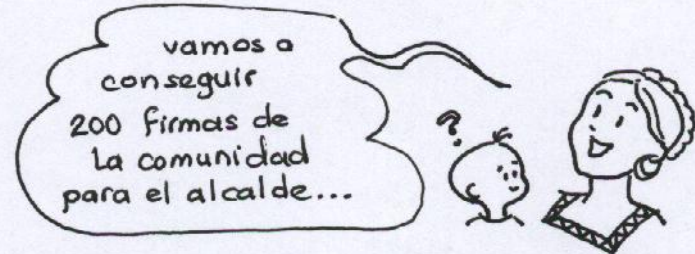 vamos a
conseguir
200 firmas de
la comunidad
para el alcalde...
?